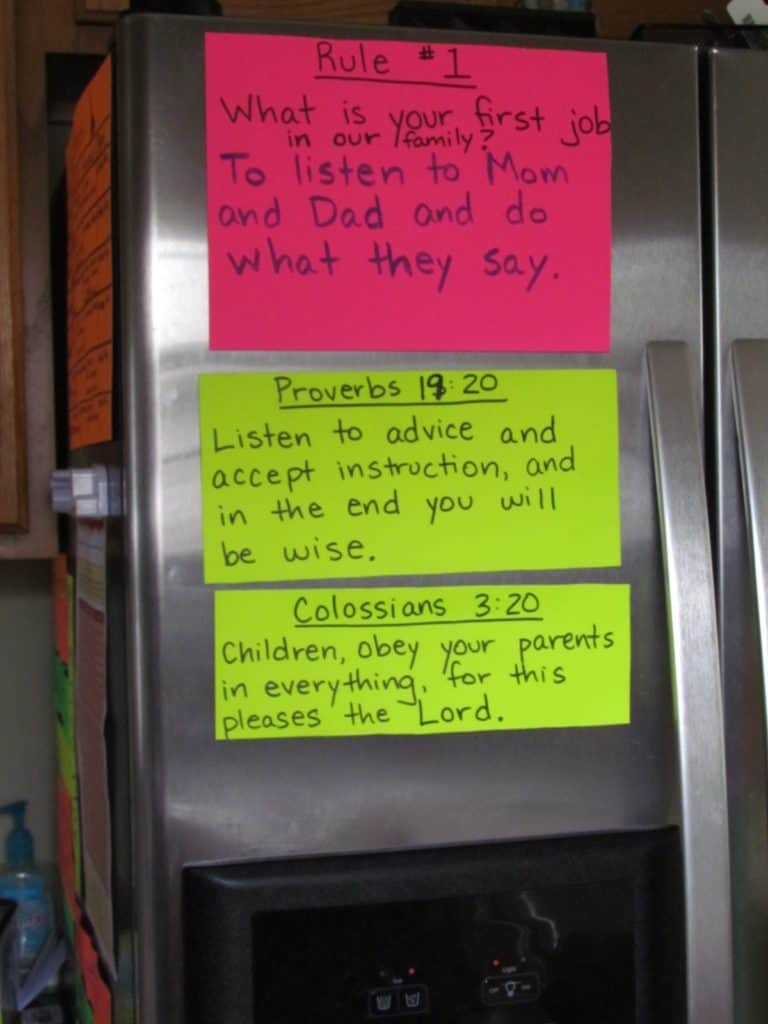 Rule #1
What is your first job
in our family?
To listen to Mom
and Dad and do
what they say.
Proverbs 19:20
Listen to advice and
accept instruction, and
in the end you will
be wise.
Colossians 3:20
Children, obey your parents
in everything, for this
pleases the Lord.